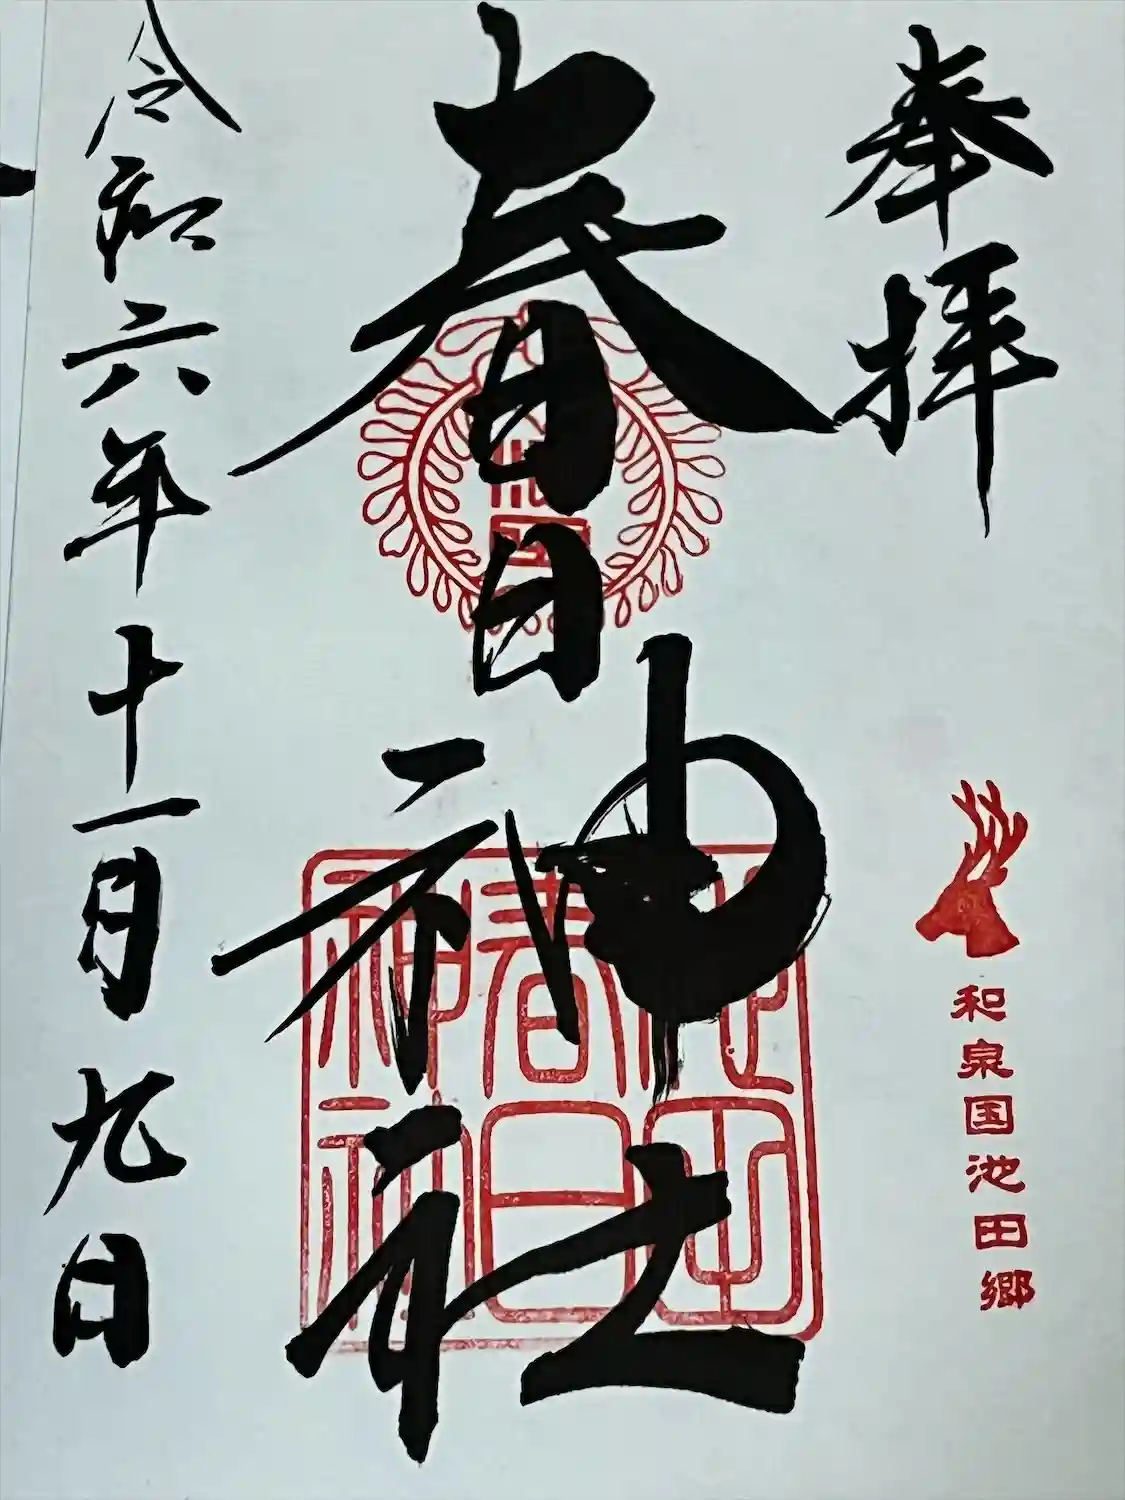 奉拝
和泉国池田郷
春日神社
池田
春日
神社
令和六年十一月九日